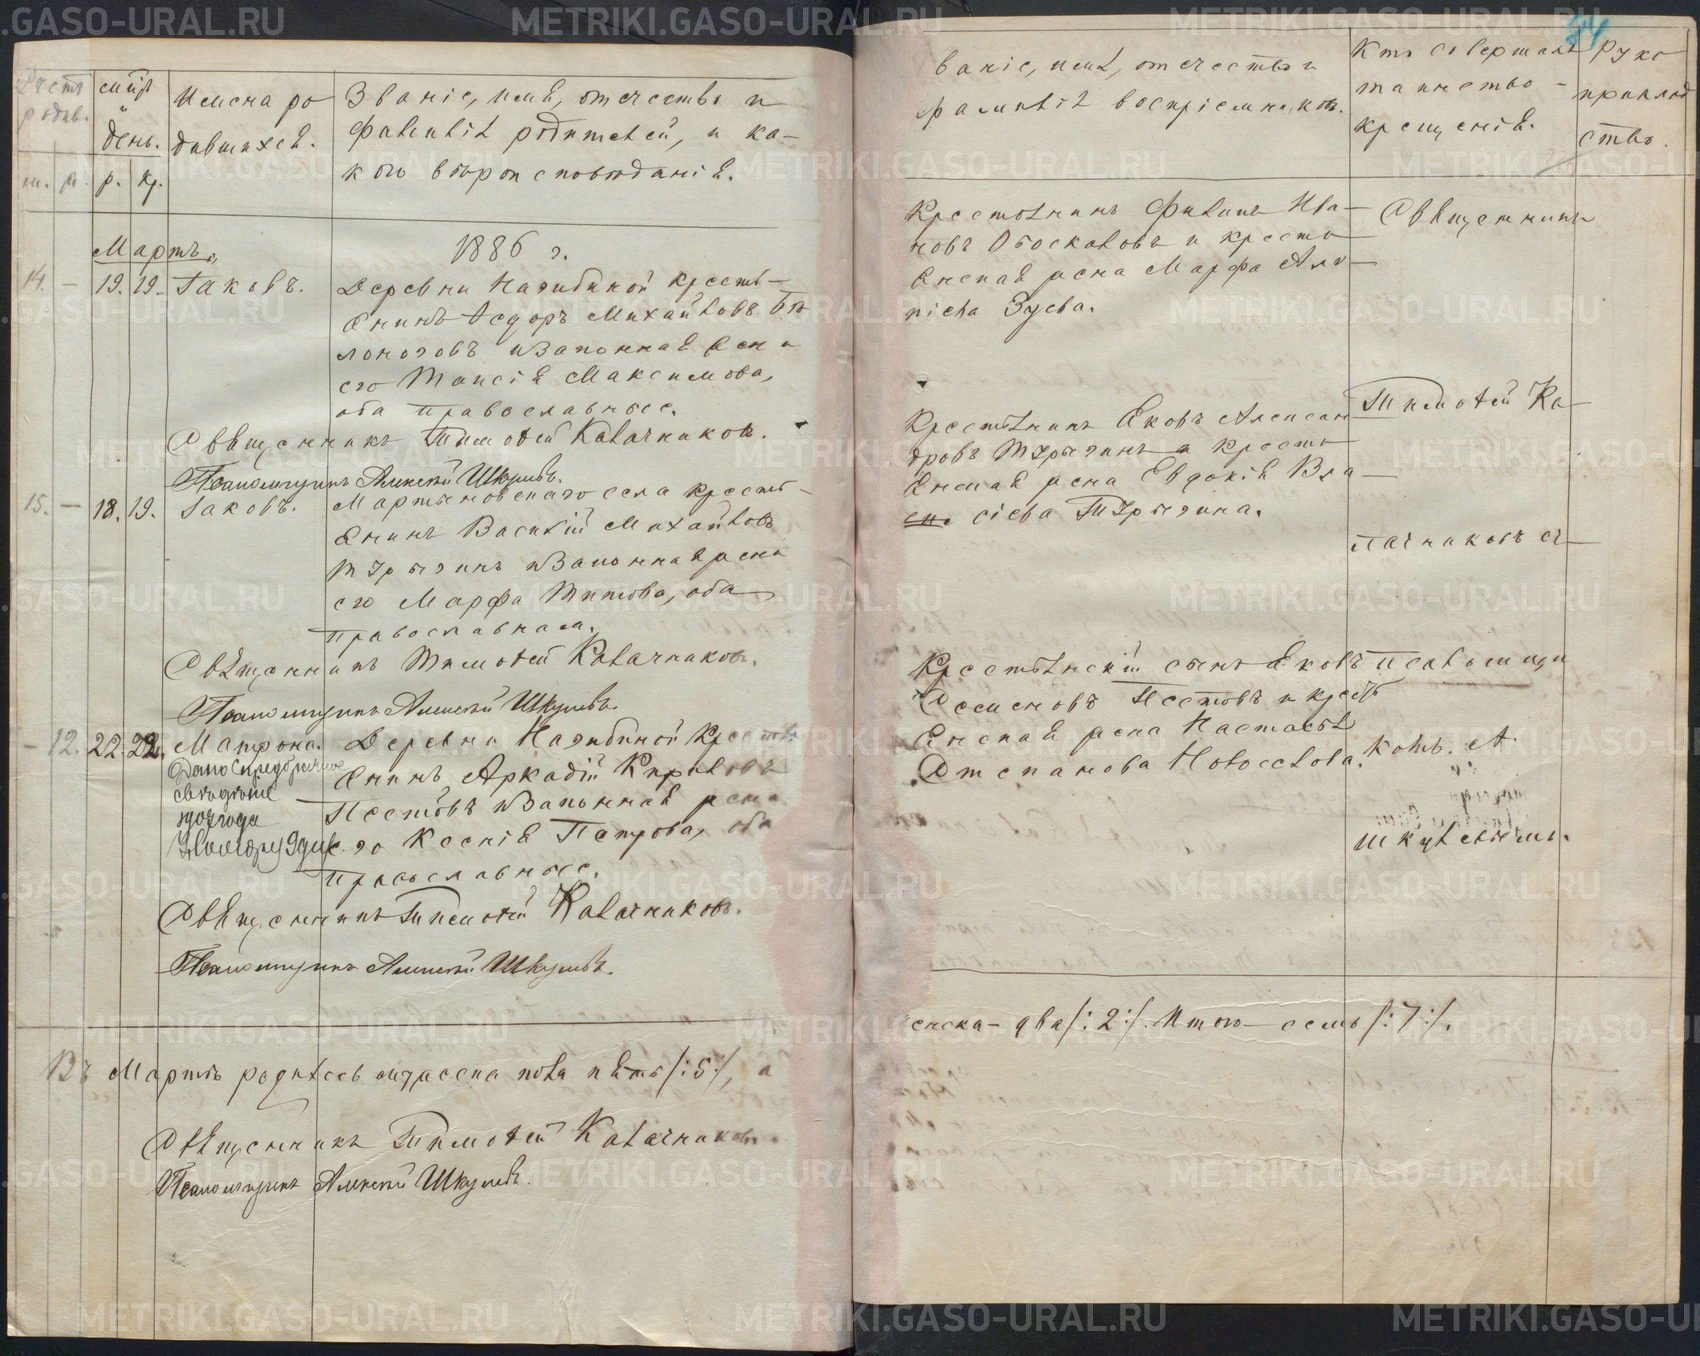 Счетъ родив.
м. ж.
мѣсяцъ и день.
р. кр.
Имена ро
дившихся.
Званіе, имя, отчество и
фамилія родителей, и ка-
кого вѣроисповѣданія.
Мартъ.
1886 г.
14. — 19. 19. Іаковъ.
Деревни Нагибиной кресть-
янинъ Ѳедоръ Михайловъ Бѣ
лоноговъ и законная жена
его Таисія Максимова,
оба православные.
Священникъ Тимоѳей Калачниковъ.
Псаломщикъ Алексѣй Шкулевъ.
15. — 18. 19. Іаковъ.
Мартыновскаго села кресть-
янинъ Василій Михайловъ
и законная жена
его Марфа Титова, оба
православные.
Священникъ Тимоѳей Калачниковъ.
Псаломщикъ Алексѣй Шкулевъ.
— 12. 22. 22. Матрона.
Дано
1904 года
Деревни Нагибиной кресть
янинъ Аркадій Кириловъ
Пестовъ и законная жена
его Ксенія Петрова, оба
православные.
Священникъ Тимоѳей Калачниковъ.
Псаломщикъ Алексѣй Шкулевъ.
Въ Мартѣ родилось мужеска пола пять /:5:/, а
Священникъ Тимоѳей Калачниковъ
Псаломщикъ Алексѣй Шкулевъ.
званіе, имя, отчество и
фамилія воспріемниковъ.
Кто совершалъ
таинство
крещенія.
Руко
приклад
ство.
Крестьянинъ Филипъ Ива-
новъ и кресть
янская жена Марфа Але-
ксіева Зуева.
Священникъ
Крестьянинъ Яковъ Алексан
дровъ и кресть
янская жена Евдокія Вла-
сіева
Тимоѳей Ка-
лачниковъ съ
Крестьянскій сынъ Яковъ
Семеновъ Пестовъ и крест
янская жена Настасья
Степанова Новоселова.
псаломщи
комъ А.
Шкулевымъ.
женска - два /:2:/. Итого - семь /:7:/.